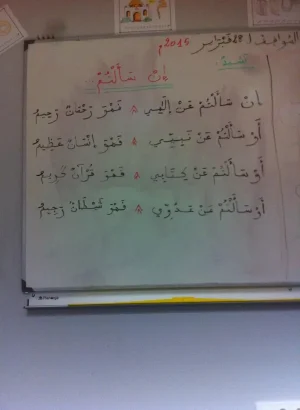 الموافق 18 فبراير 2015م
نشيد:
إن سألتم
إن سألتم عن إلهي * فهو رحمان رحيم
أو سألتم عن نبيي * فهو إنسان عظيم
أو سألتم عن كتابي * فهو قرآن كريم
أو سألتم عن عدوي * فهو شيطان رجيم